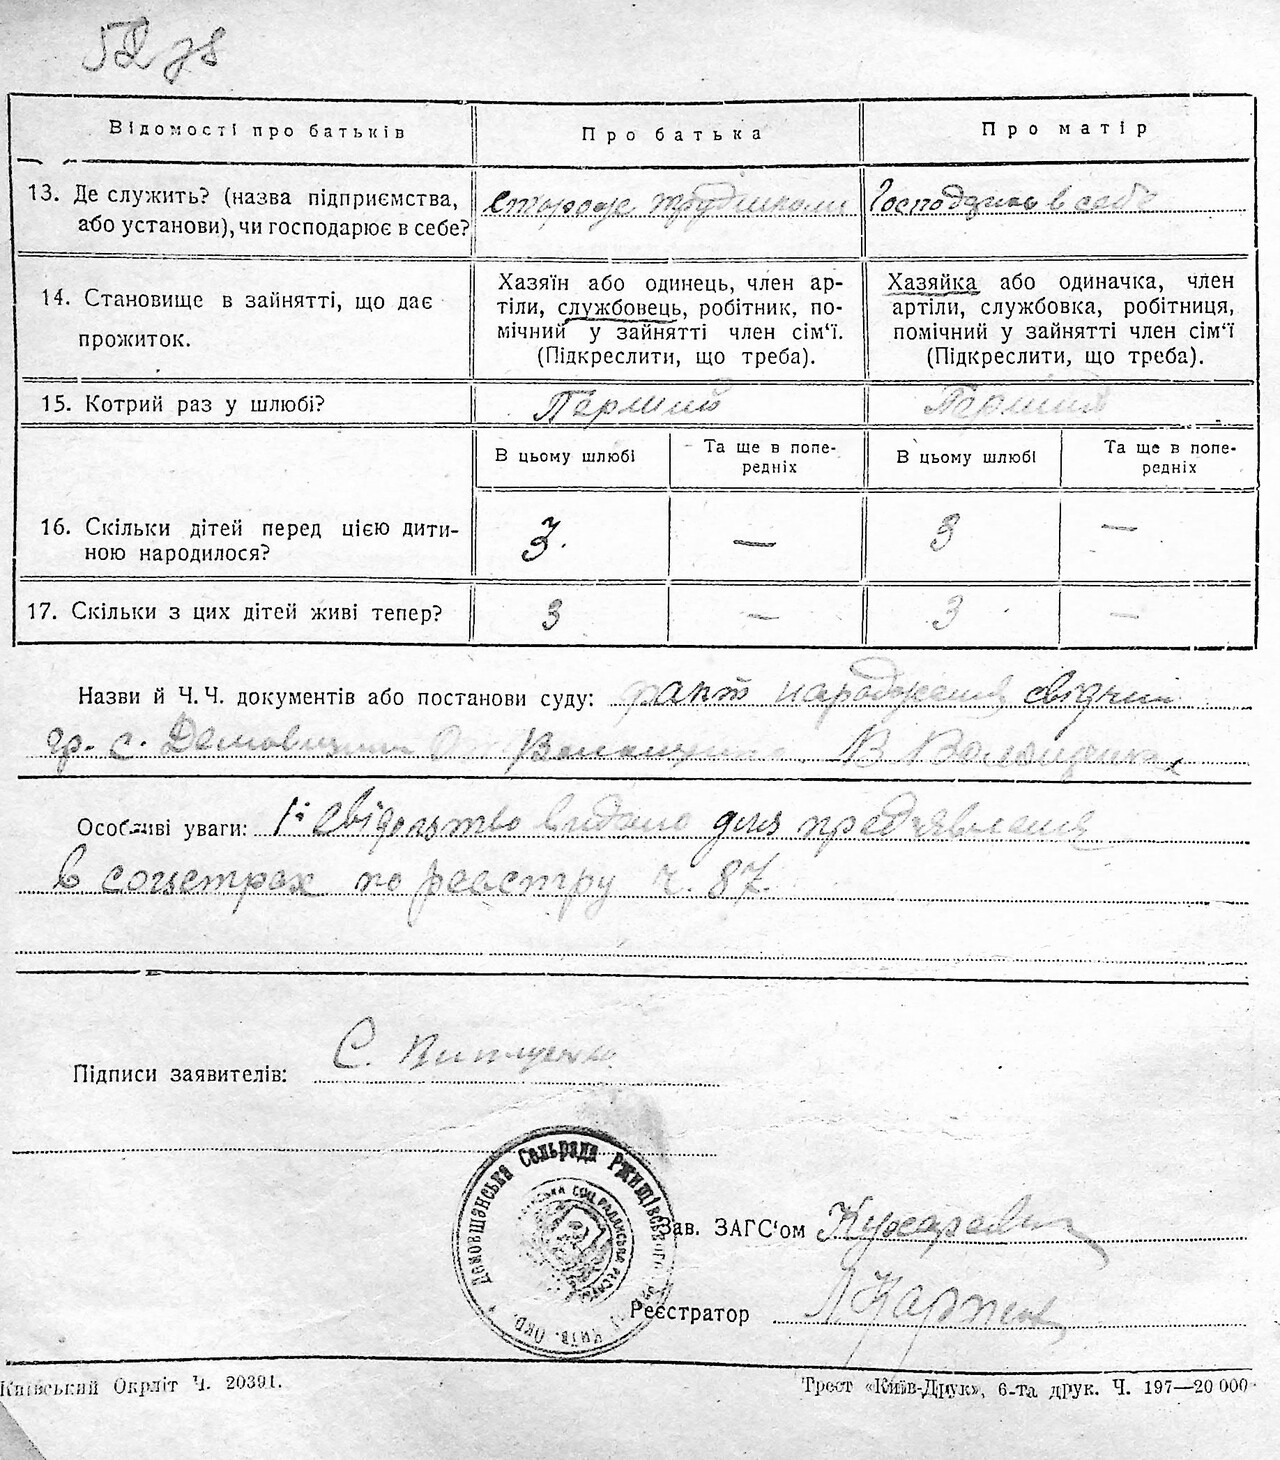 Відомості про батьків
Про батька
Про матір
13. Де служить? (назва підприємства,
або установи), чи господарює в себе?
сторож трудшколи
Господарює в себе
14. Становище в зайнятті, що дає
прожиток.
Хазяїн або одинець, член ар-
тіли, службовець, робітник, по-
мічний у зайнятті член сім'ї.
(Підкреслити, що треба).
Хазяйка або одиначка, член
артіли, службовка, робітниця,
помічний у зайнятті член сім'ї
(Підкреслити, що треба).
15. Котрий раз у шлюбі?
Перший
Перший
В цьому шлюбі
Та ще в попе-
редніх
В цьому шлюбі
Та ще в попе-
редніх
16. Скільки дітей перед цією дити-
ною народилося?
3.
—
3
—
17. Скільки з цих дітей живі тепер?
3
—
3
—
Назви й Ч. Ч. документів або постанови суду: факт народження свідчили
гр. с. В.
Особливі уваги: 1: Свідоцтво видано для предзявлення
в соцстрах по реєстру ч. 87.
Підписи заявителів: С.
Зав. ЗАГС'ом
Реєстратор
Сельрада Ржищівського
КИЇВ. ОКР.
Київський Окрліт Ч. 20391.
Трест «Київ-Друк», 6-та друк. Ч. 197—20 000